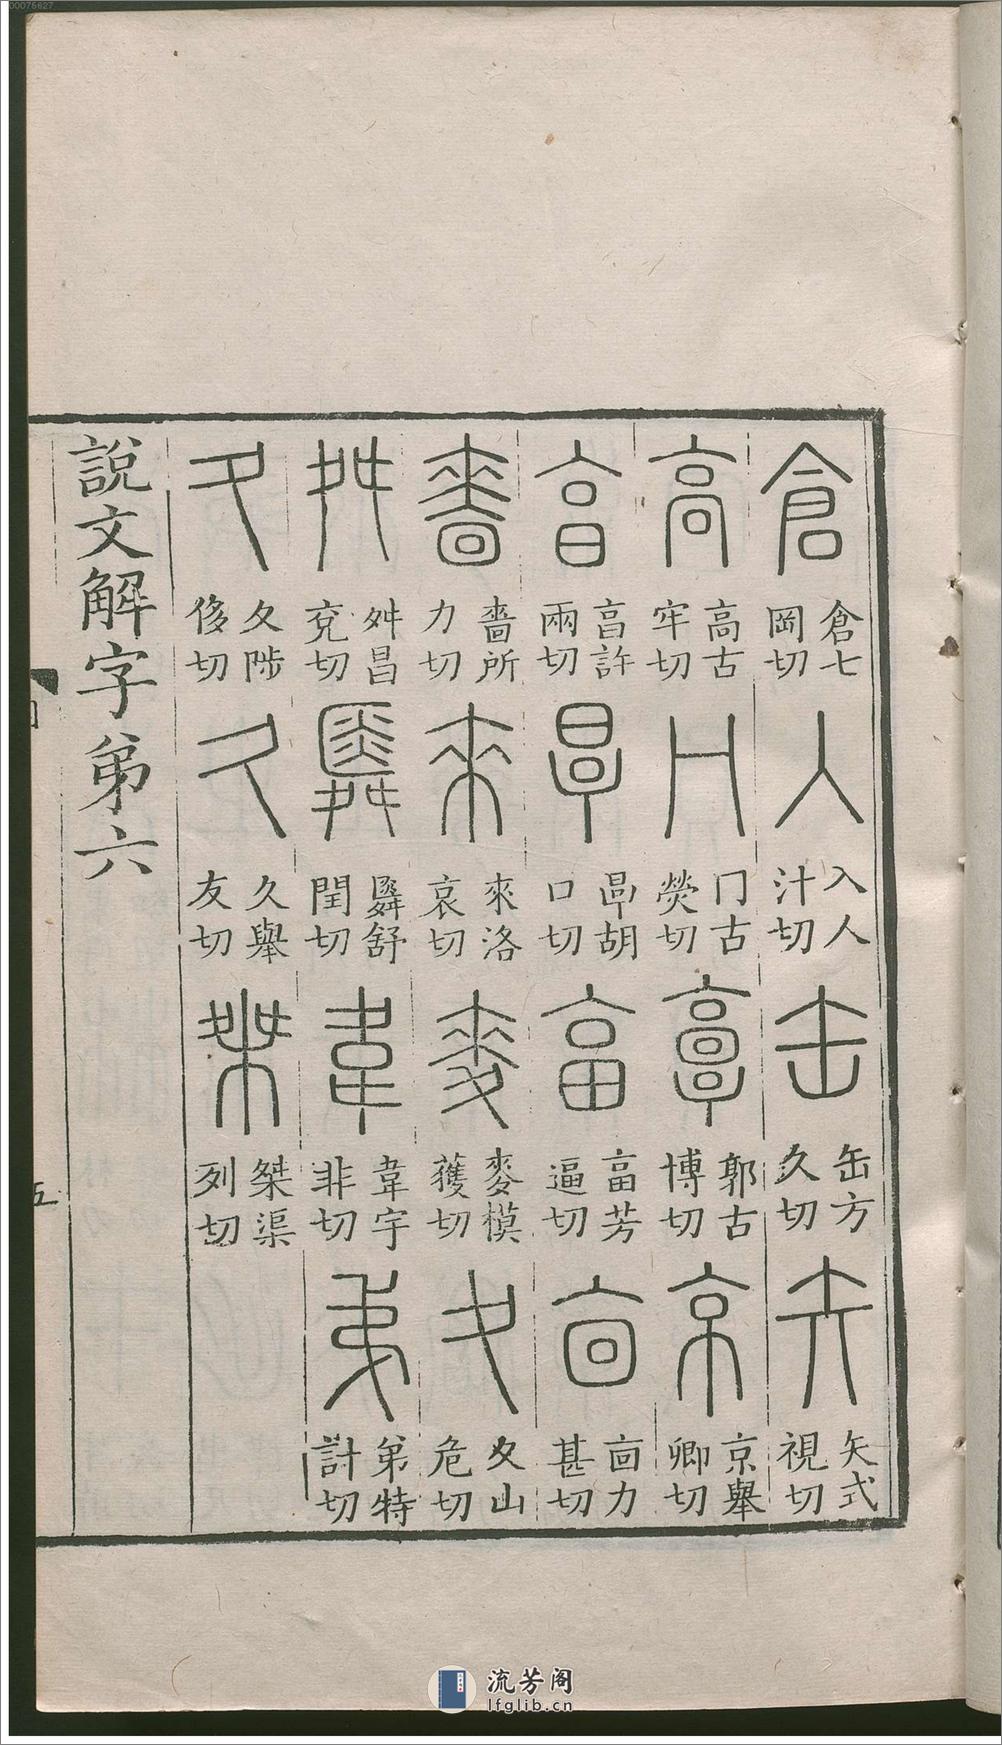 00075627
倉倉七岡切入入人汁切缶缶方久切矢矢式視切
高高古牢切冂冂古熒切𩫏郭古博切京京舉卿切
亯亯許兩切㫗㫗胡口切畗畗芳逼切㐭㐭力甚切
嗇嗇所力切來來洛哀切麥麥模獲切夊夊山危切
舛舛昌兖切䑞䑞舒閏切韋韋宇非切弟弟特計切
夂夂陟侈切久久舉友切桀桀渠列切
說文解字弟六
五
流芳阁
lfglib.cn